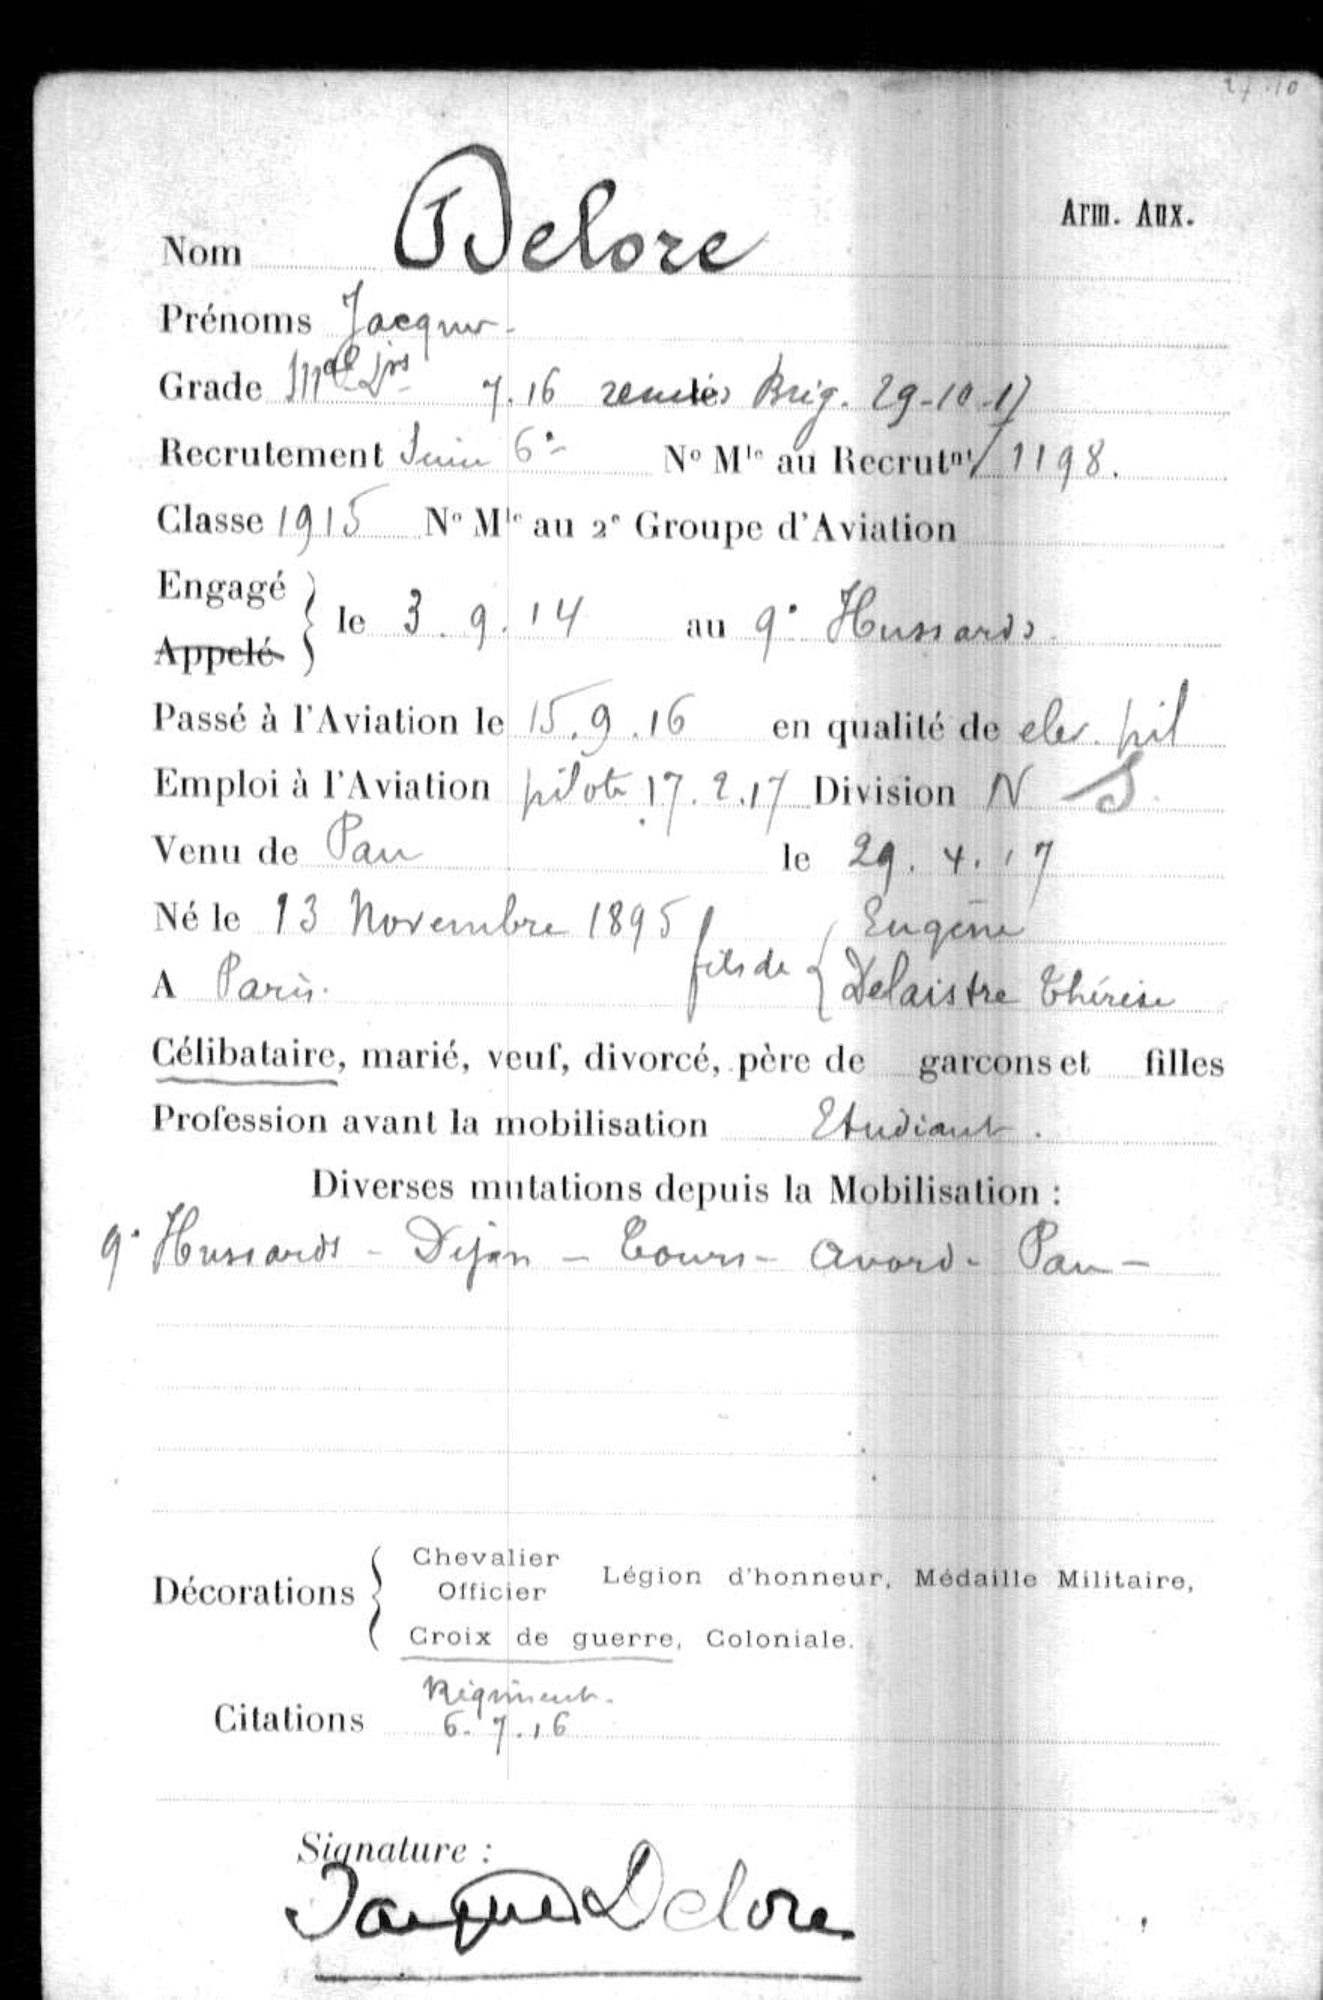 27.10
Arm. Aux.
Nom Delore
Prénoms Jacques
Grade Mal Lgis 7.16 Brig. 29-10-17
Recrutement Seine 6e No Mle au Recrutnt 1198.
Classe 1915 No Mle au 2e Groupe d'Aviation
Engagé
Appelé
le 3.9.14 au 9e Hussards.
Passé à l'Aviation le 15.9.16 en qualité de elev. pil
Emploi à l'Aviation pilote 17.2.17 Division N S
Venu de Pau le 29.4.17
Né le 13 Novembre 1895 fils de { Eugène
A Paris. Delaistre Thérèse
Célibataire, marié, veuf, divorcé, père de garcons et filles
Profession avant la mobilisation Etudiant.
Diverses mutations depuis la Mobilisation :
9e Hussards - Dijon - Tours - Avord - Pau -
Décorations { Chevalier
Officier Légion d'honneur, Médaille Militaire,
Croix de guerre, Coloniale.
Régiment.
Citations 6.7.16
Signature :
Jacques Delore